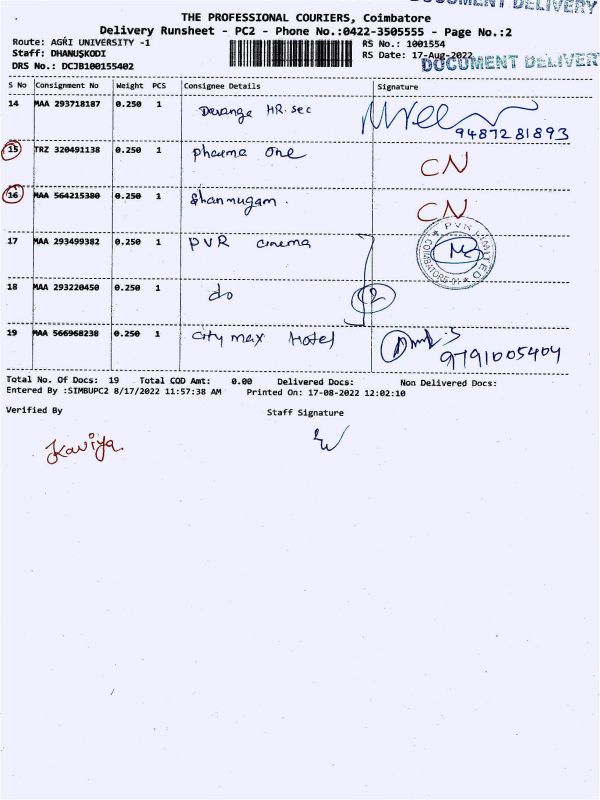 DOCUMENT DELIVERY
THE PROFESSIONAL COURIERS, Coimbatore
Delivery Runsheet - PC2 - Phone No.:0422-3505555 - Page No.:2
Route: AGRI UNIVERSITY -1 RS No.: 1001554
Staff: DHANUSKODI RS Date: 17-Aug-2022
DOCUMENT DELIVERY
DRS No.: DCJB100155402
S No Consignment No Weight PCS Consignee Details Signature
14 MAA 293718187 0.250 1 Devange HR.sec
9487281893
15 TRZ 320491138 0.250 1 pharma one CN
16 MAA 564215380 0.250 1 Shanmugam. CN
17 MAA 293499382 0.250 1 PVR cinema
PVR LIMITED
COIMBATORE
18 MAA 293220450 0.250 1 do 2
19 MAA 566968238 0.250 1 City max Hotel
9791005404
Total No. Of Docs: 19 Total COD Amt: 0.00 Delivered Docs: Non Delivered Docs:
Entered By :SIMBUPC2 8/17/2022 11:57:38 AM Printed On: 17-08-2022 12:02:10
Verified By Staff Signature
Kaviya.